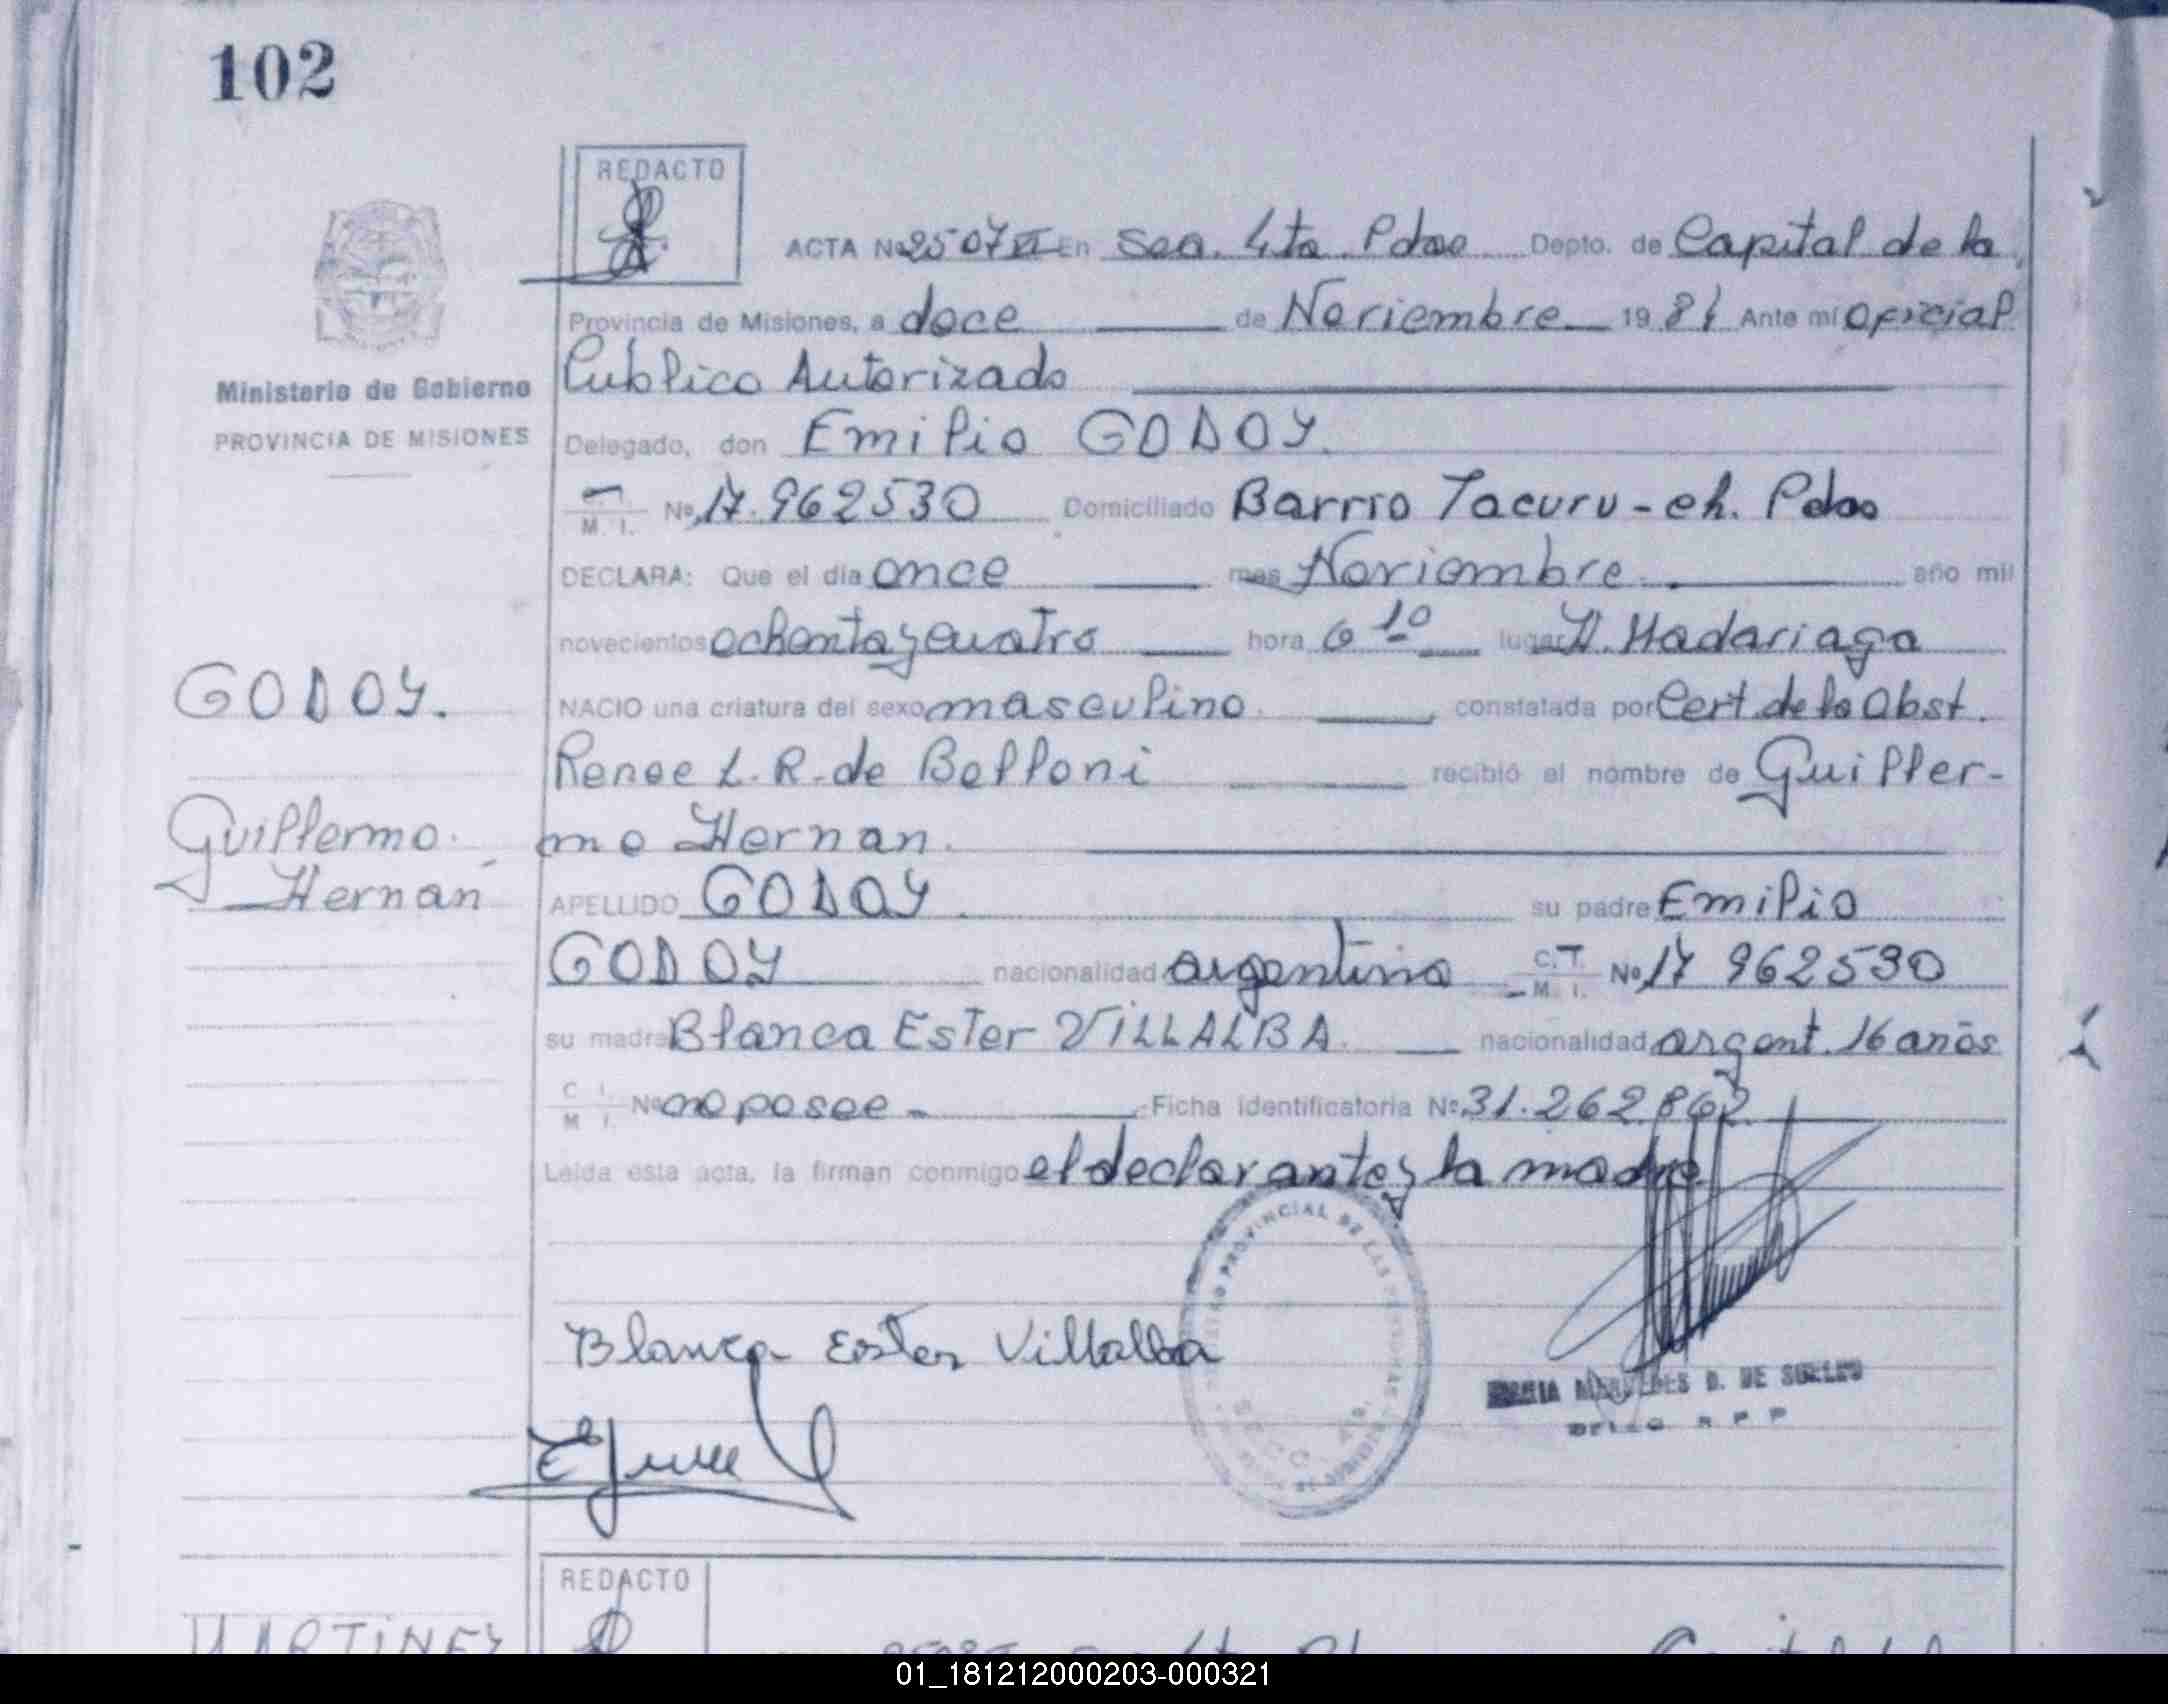 102
REDACTO
ACTA Nº 2507 VI En Sec. 4ta Pdas Depto. de Capital de la
Provincia de Misiones, a doce de Noviembre 1984 Ante mí Oficial
Publico Autorizado
Ministerio de Gobierno
PROVINCIA DE MISIONES
Delegado, don Emilio GODOY.
M. I. Nº 17.962530 Domiciliado Barrio Tacuru - ch. Pdas
DECLARA: Que el día once mes Noviembre año mil
novecientos ochenta y cuatro hora 6 10 lugar H. Madariaga
GODOY.
NACIO una criatura del sexo masculino. constatada por Cert. de la Obst.
Renee L. R. de Belloni recibió el nombre de Guiller-
Guillermo Hernan
mo Hernan.
APELLIDO GODOY su padre Emilio
GODOY nacionalidad argentina C. I. M. I. Nº 17 962530
su madre Blanca Ester VILLALBA. nacionalidad argent. 16 años
C. I. M. I. Nº no posee - Ficha identificatoria Nº 31.262.862
Leída esta acta, la firman conmigo el declarante y la madre
Blanca Ester Villalba
REGISTRO PROVINCIAL DE LAS PERSONAS
DE SUELDO
REDACTO
MARTINEZ
01_181212000203-000321